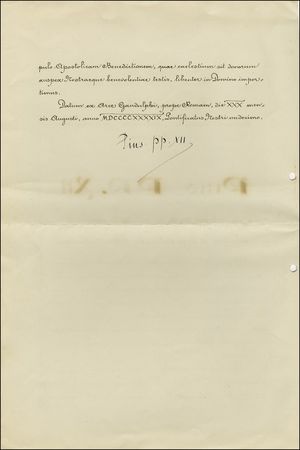 pulo Apostolicam Benedictionem, quae caelestium sit donorum
auspex Nostraeque benevolentiae testis, libenter in Domino imper-
timus.
Datum ex Arce Gandulphi, prope Romam, die XXX men-
sis Augusti, anno MDCCCCXXXXIX, Pontificatus Nostri undecimo.
Pius pp. XII